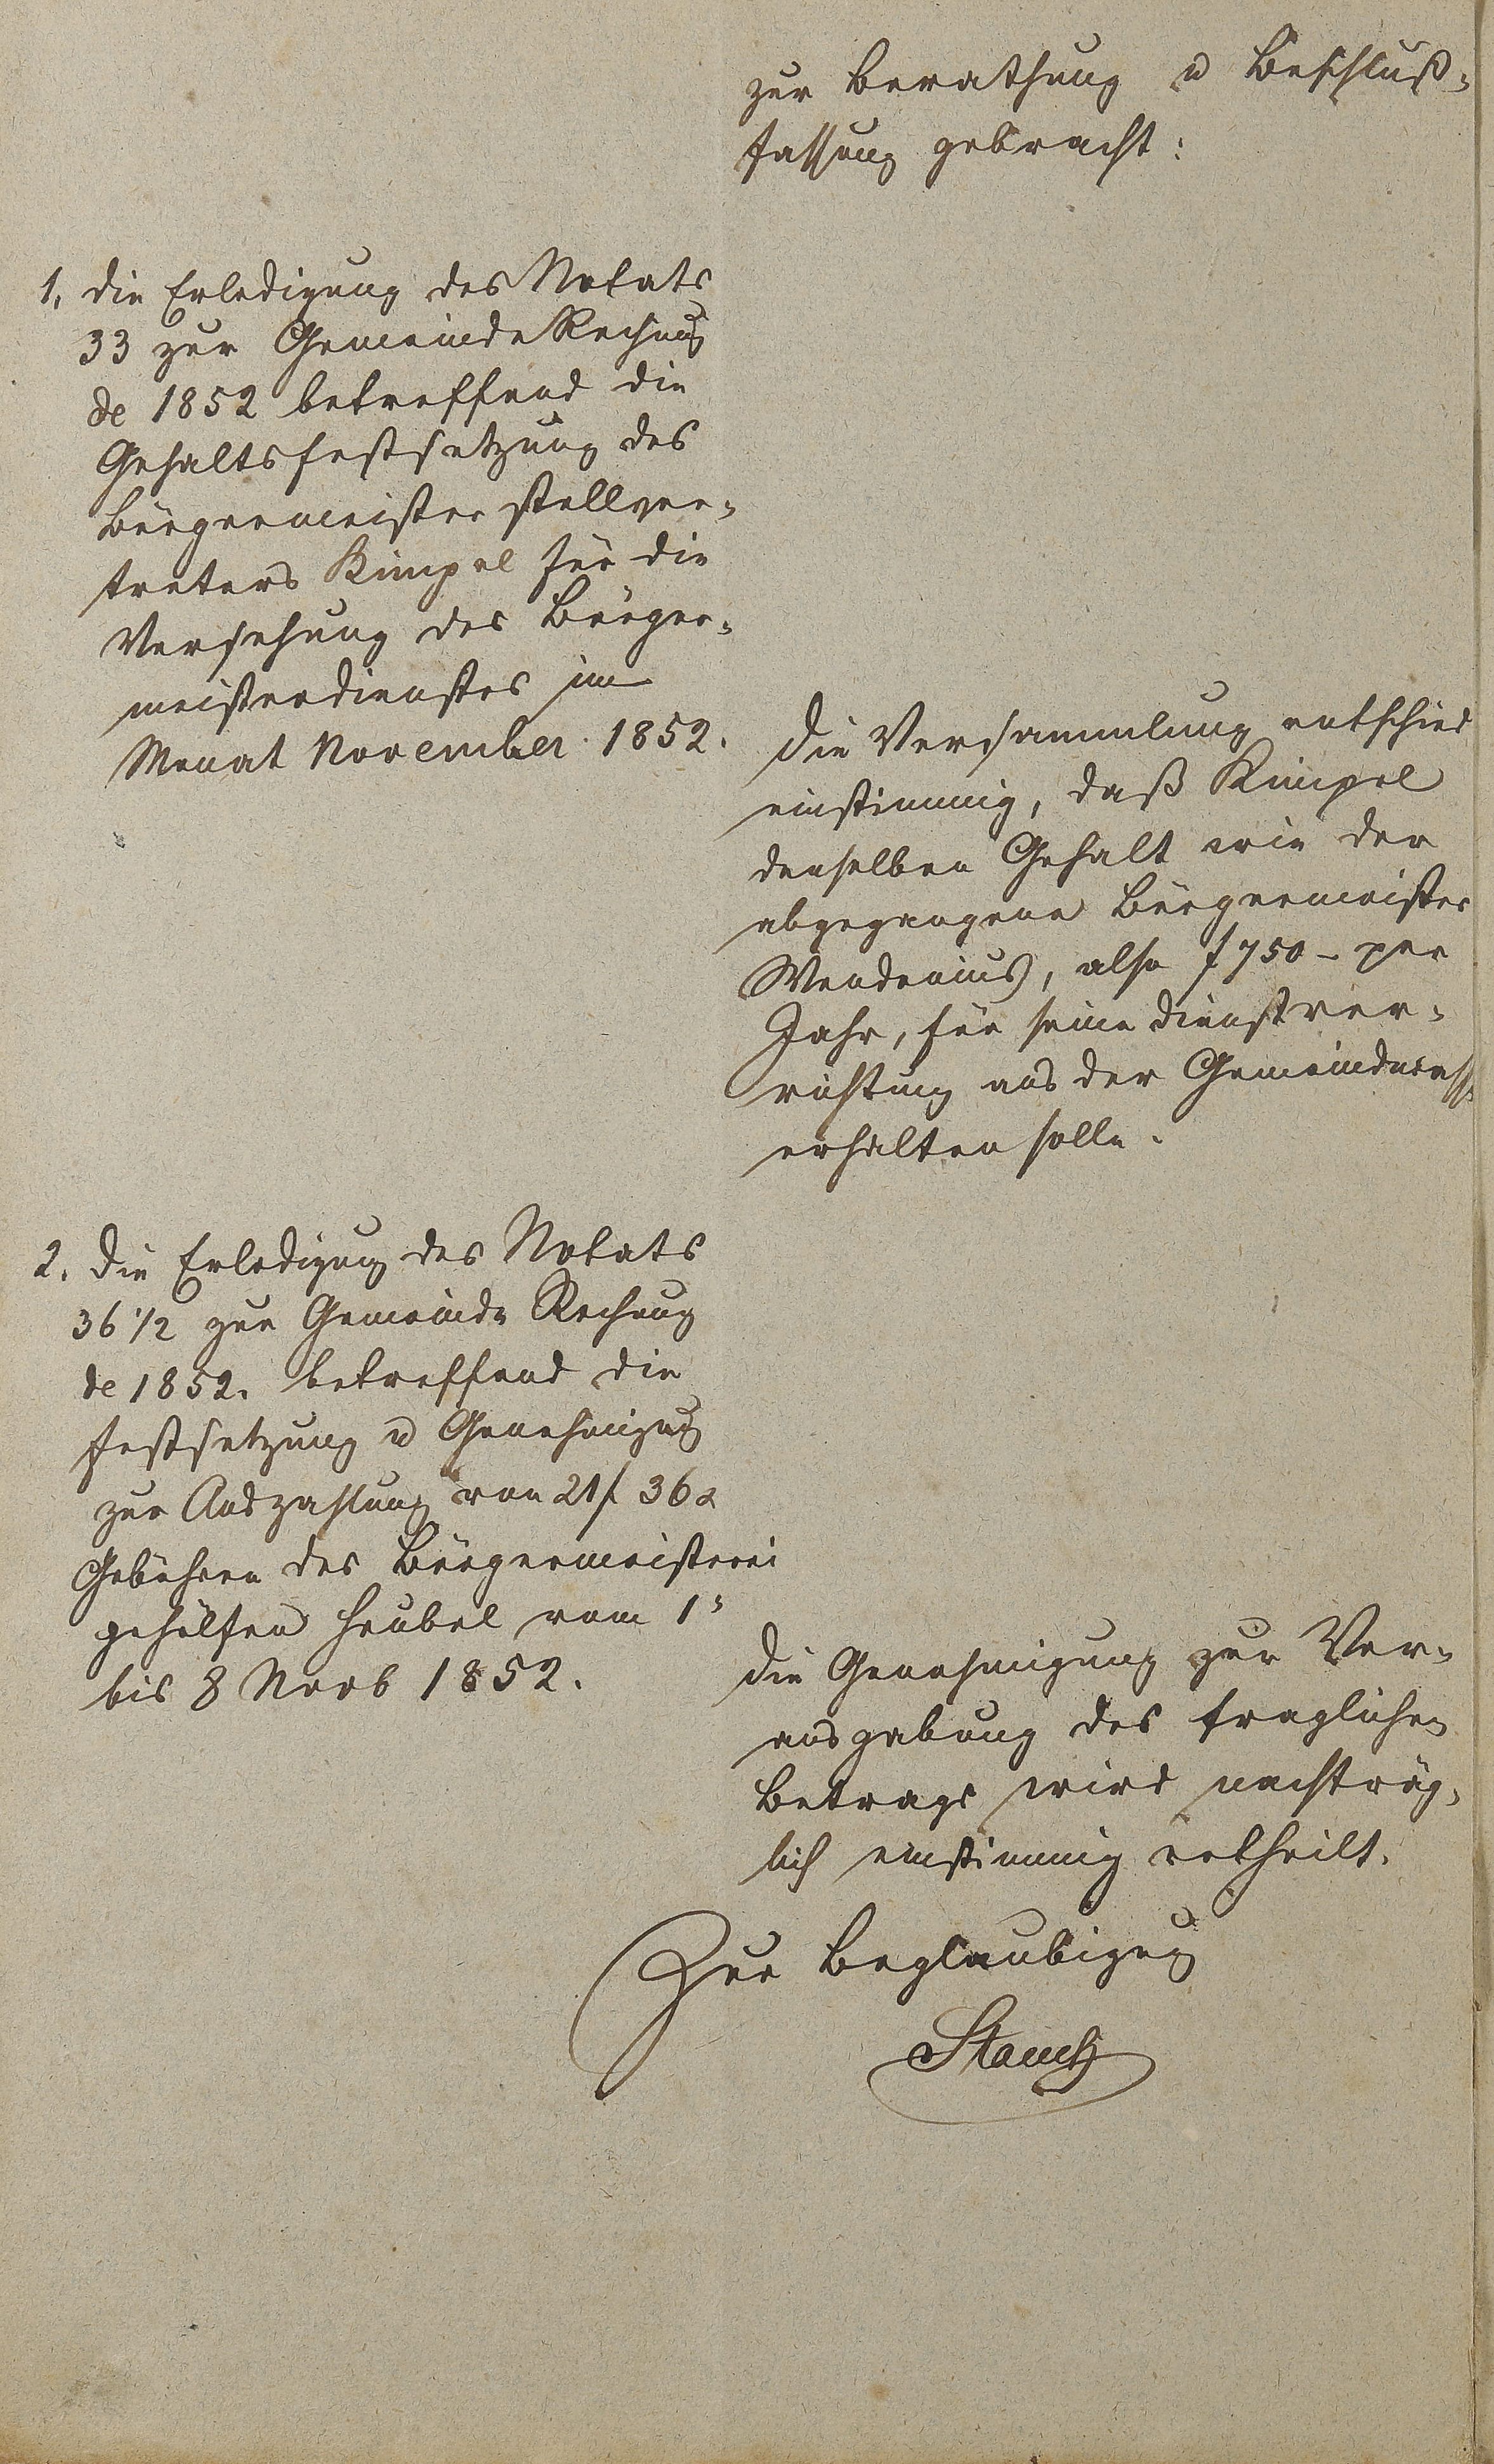 zur Berathung u Beschluß-
fassung gebracht:
1, die Erledigung des Notats
33 zur Gemeinde Rechnung
de 1852 betreffend die
Gehaltsfestsetzung des
Bürgermeister stellver-
treters Kimpel für die
Versehung des Bürger-
meisterdienstes im
Monat November 1852.
Die Versammlung entschied
einstimmig, daß Kimpel
denselben Gehalt wie der
abgegangene Bürgermeister
Wendenius, also f 750 – per
Jahr, für seine Dienstver-
richtung aus der Gemeindecasse
erhalten solle.
2, die Erledigung des Notats
36 1/2 zur Gemeinde Rechnung
de 1852. betreffend die
Festsetzung u Genehmigung
zur Auszahlung von 21 f 36 x
Gebühren des Bürgermeisterei
gehülfen Heubel vom 1n
bis 8 Novb 1852.
Die Genehmigung zur Ver-
ausgabung des fraglichen
Betrags wird nachträg-
lich einstimmig ertheilt.
Zur Beglaubigung
Stauch